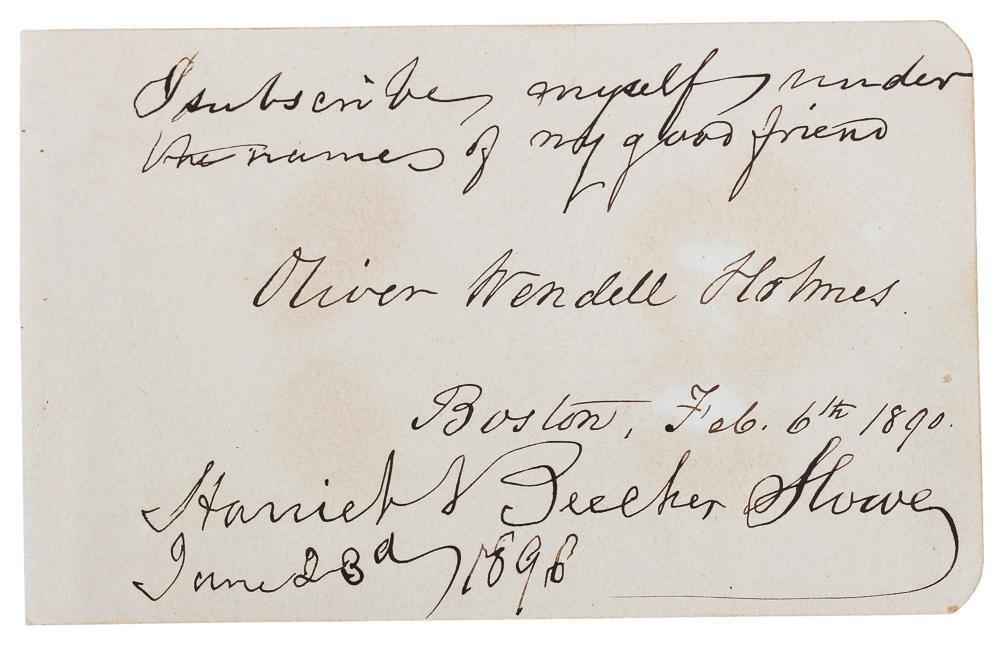 I subscribe myself under
the names of my good friend
Oliver Wendell Holmes.
Boston, Feb. 6th 1890.
Harriet Beecher Stowe
June 23d